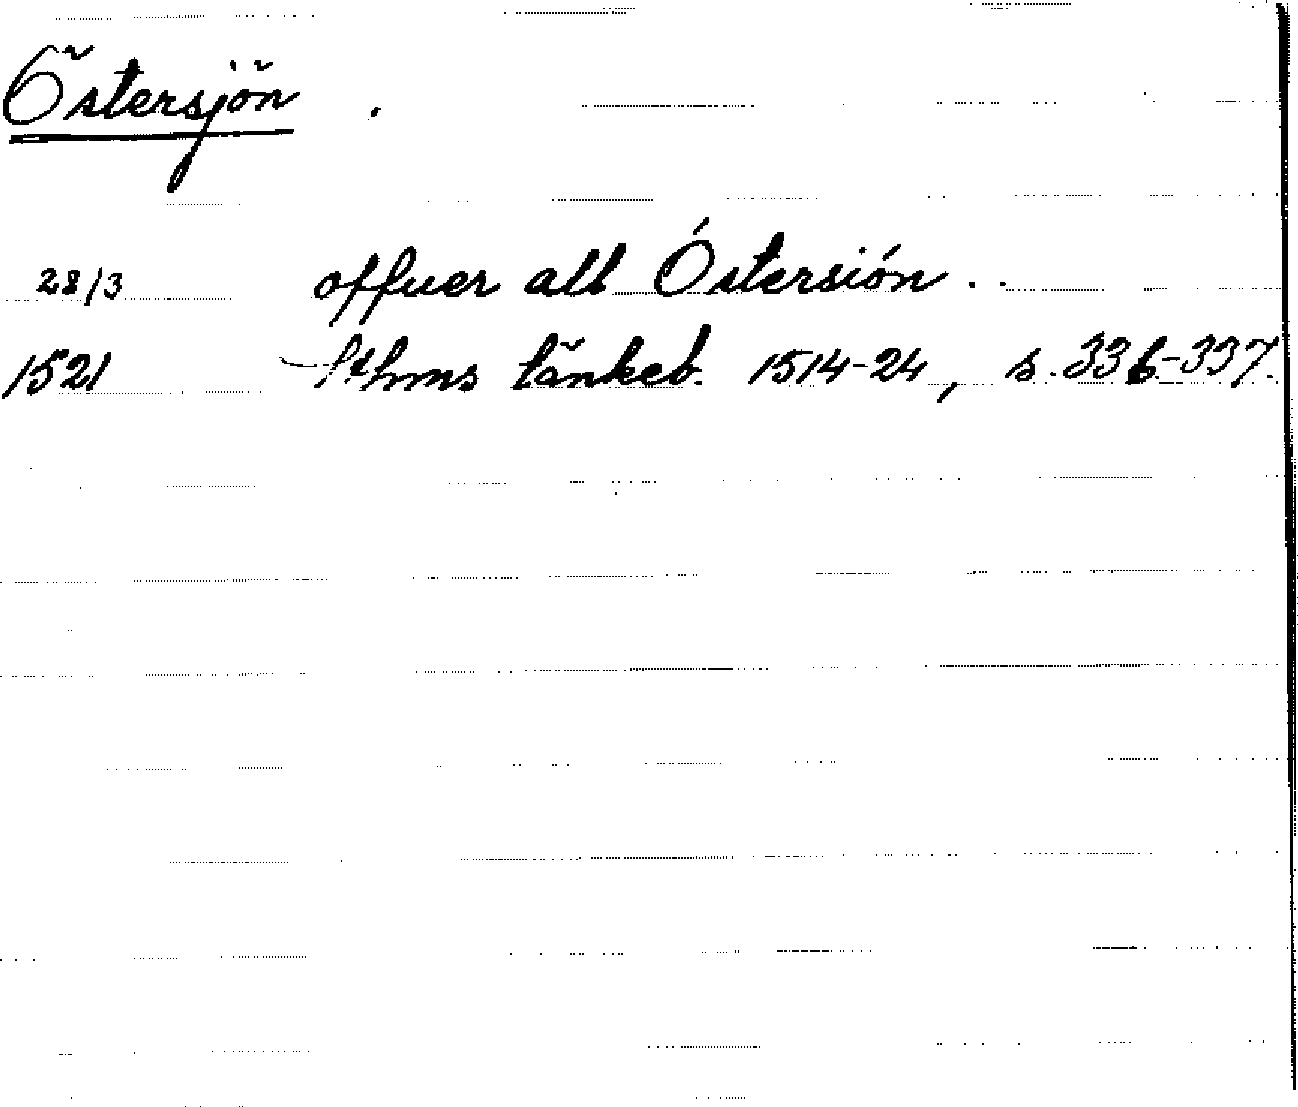 Östersjön .
28/3 offuer alt Óstersión ..
1521 Sthms tänkeb. 1514-24, s. 336-337.